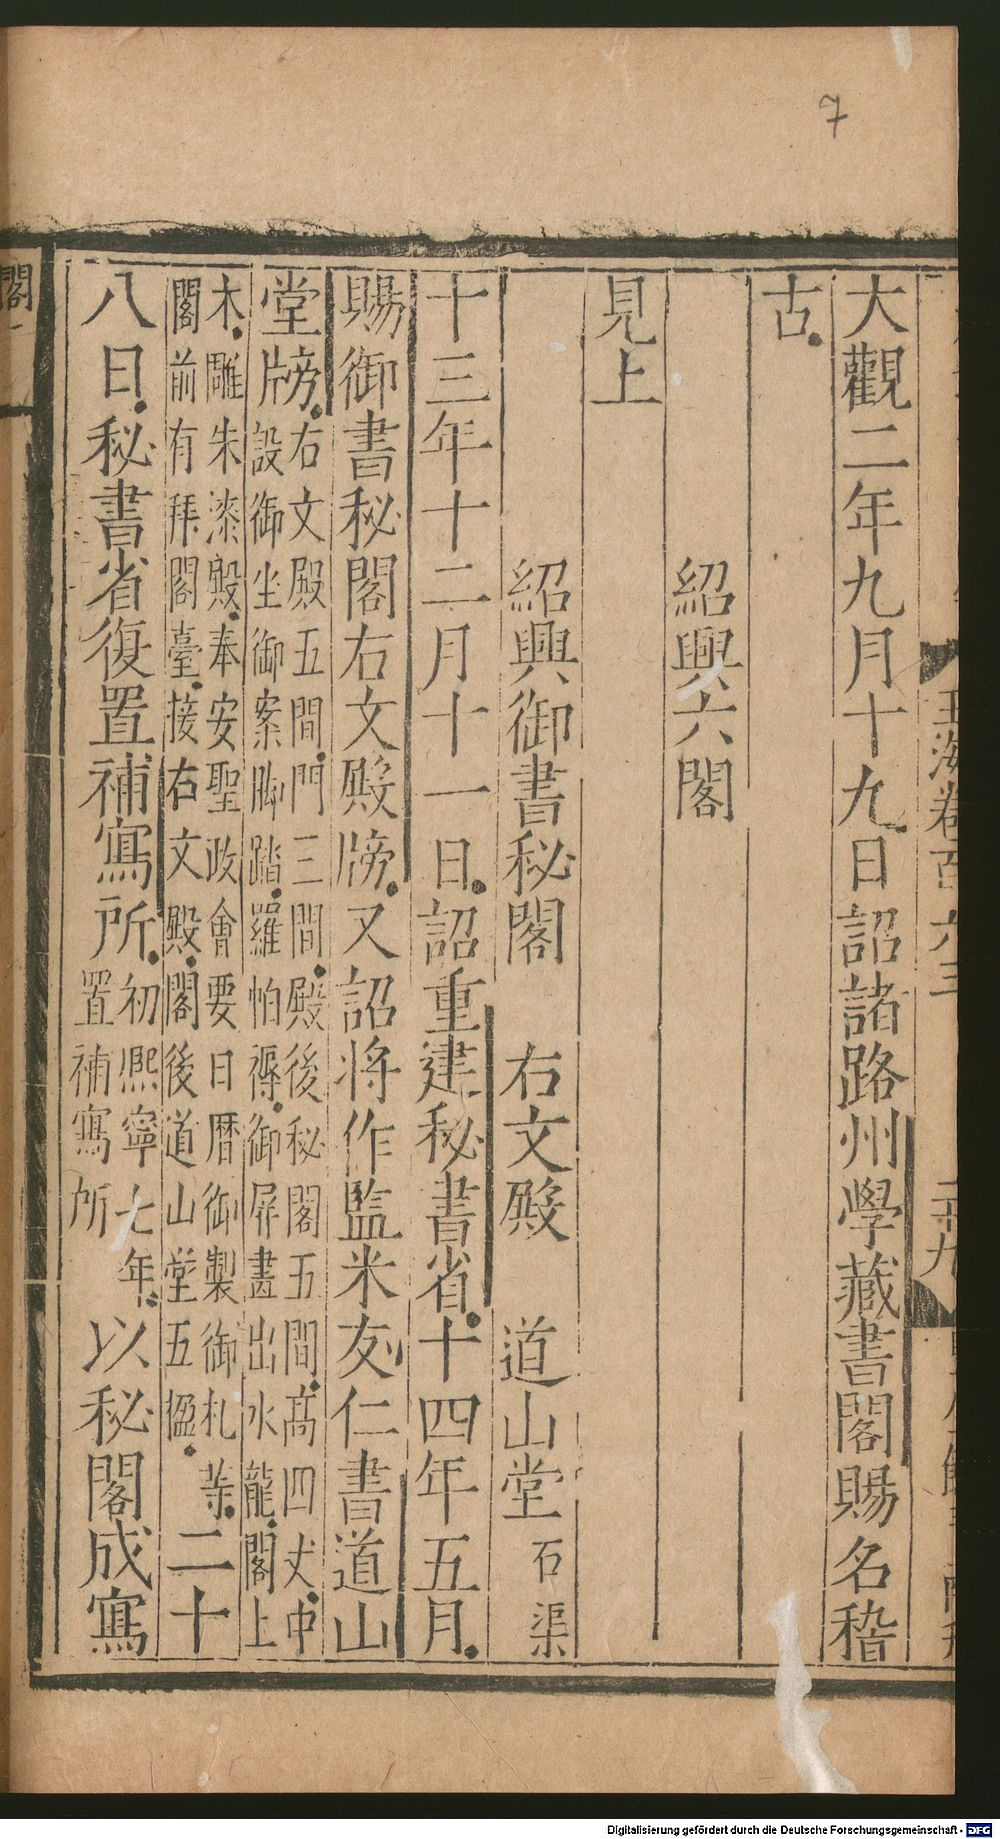 7
玉海卷百六三
二十九
大觀二年九月十九日詔諸路州學藏書閣賜名稽
古
紹興六閣
見上
紹興御書秘閣 右文殿 道山堂 石渠
十三年十二月十一日詔重建秘書省十四年五月
賜御書秘閣右文殿牓又詔將作監米友仁書道山
堂牓右文殿五間門三間殿後秘閣五間高四丈中
設御坐御案脚踏羅帕褥御屏畫出水龍閣上
木雕朱漆殿奉安聖政會要日曆御製御札等
閣前有拜閣臺接右文殿閣後道山堂五楹二十
八日秘書省復置補寫所初熙寧七年
置補寫所以秘閣成寫
閣一
Digitalisierung gefördert durch die Deutsche Forschungsgemeinschaft - DFG